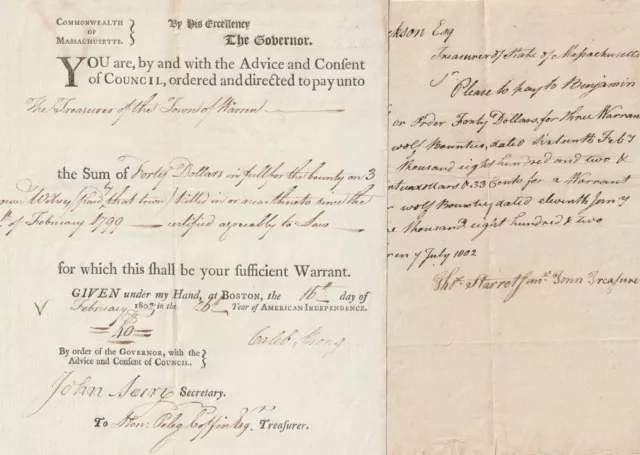 COMMONWEALTH
OF
MASSACHUSETTS.
By His Excellency
The Governor.
YOU are, by and with the Advice and Consent
of COUNCIL, ordered and directed to pay unto
The Treasurer of the Town of Warren
the Sum of Forty Dollars in full for the bounty on 3
grown Wolves (paid by that town) killed in or near thereto since the
of February 1799 — certified agreeably to Law
for which this shall be your sufficient Warrant.
GIVEN under my Hand, at BOSTON, the 16th day of
February 1802 in the 26th Year of AMERICAN INDEPENDENCE.
40
Caleb Strong
By order of the GOVERNOR, with the
Advice and Consent of COUNCIL.
John Avery Secretary.
To Hon. Peleg Coffin Esqr. Treasurer.
ckson Esq
Treasurer of State of Massachusetts
Sr. Please to pay to Benjamin
or Order Forty Dollars, for three Warrant
wolf Bounties, dated sixteenth Feby
thousand eight hundred and two &
dollars & 33 Cents for a Warrant
wolf Bounty dated eleventh Jany
thousand eight hundred & two
7 July 1802
Thos. Starrett Town Treasure